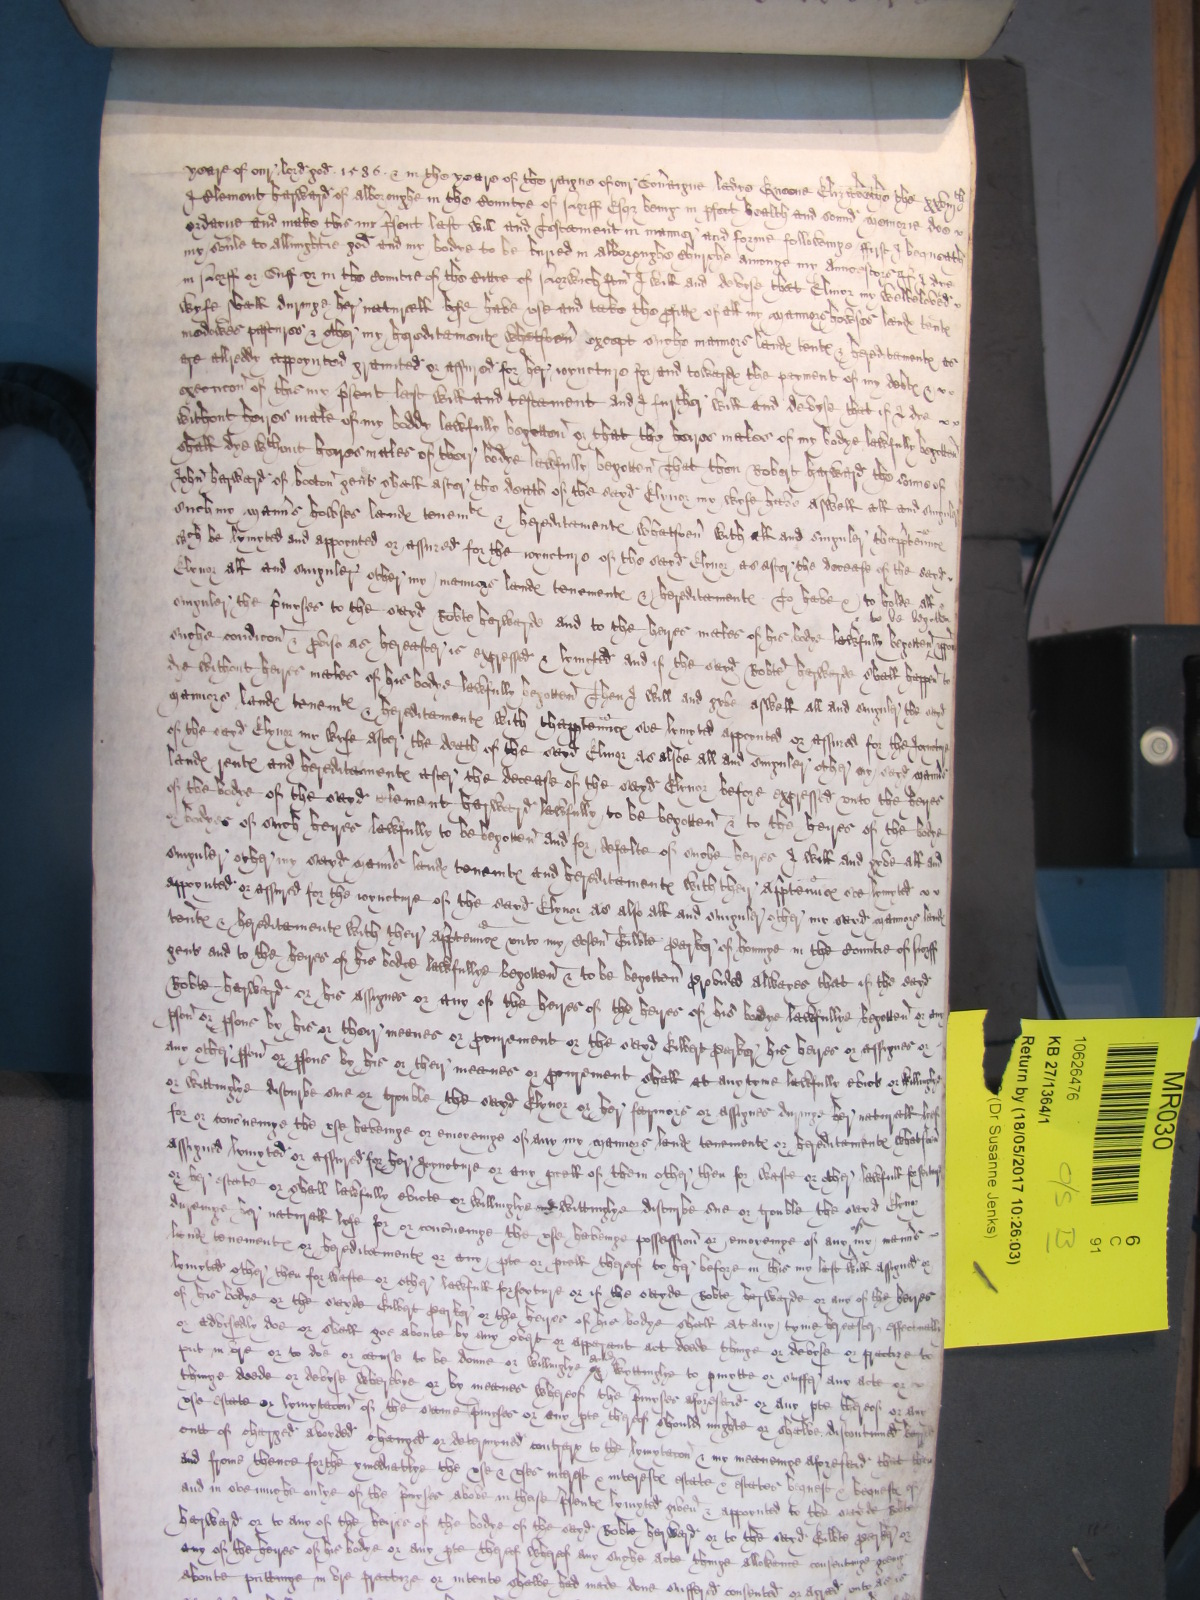 yeare of our lord god 1586 & in the yeare of the raigne of our Soveraigne ladye Queene Elizabethe the xxviijth
I Clement harward of alboroughe in the Countye of norff Esqr being in pfect health and sound memorie doe
ordayne and make this my psent last will and Testament in manner and forme followinge ffirst I bequeath
my soule to allmightie god and my bodye to be buried in alboroughe Churche amonge my if I dye
in norff or Suff or in the Countie of the Cittie of norwich Itm I will and devyse that Elinor my welbeloved
wyfe shall duringe her naturall lyfe have use and take the pfitts of all my mannors howses lands tents
medowes pastures & other my hereditaments whatsoevr except suche mannors lands tents & hereditaments as
are allreddy appoynted graunted or assured for her joyncture for and towards the payment of my debts &
execucon of this my psent last will and testament and I further will and devyse that if I dye
without heires male of my boddy lawfully begotten or that the heires males of my bodye lawfully begotten
shall dye without heires males of their bodye lawfully begotten That then Robert harward the sonne of
John harward of booton gent shall after the death of the sayd Elynor my wyfe have aswell all and singuler
such my mannors howses lands tenemts & hereditaments whatsoevr with all and singuler thapptennces
wch be lymyted and appoynted or assured for the joyncture of the sayd Elynor as after the decease of the sayd
Elynor all and singuler other my mannors lands tenements & hereditaments To have & to holde all &
singuler the pmyses to the sayd Robte harwarde and to the heires males of his bodye lawfully begotten & to be begotten upon
suche condicon & pviso as hereafter is expressed & lymyted and if the sayd Robte harwarde shall happen to
dye without heires males of his bodye lawfully begotten Then I will and gyve aswell all and singuler the sayd
mannors lands tenemts & hereditaments with thapptennces soe lymyted appoynted or assured for the Joyncture
of the sayd Elynor my wyfe after the death of the sayd Elinor as alsoe all and singuler other my sayd mannors
lands rents and hereditaments after the decease of the sayd Elynor before expressed unto the heires
of the bodye of the sayd Clement harward lawfully to be begotten & to the heires of the bodye
or bodyes of such heires lawfully to be begotten and for defalte of suche heires I will and gyve all and
singuler other my sayd mannors lands tenemts and hereditaments with their apptennces soe lymyted
appoynted or assured for the joyncture of the sayd Elynor as also all and singuler other my sayd mannors lands
tents & hereditaments with their apptennces unto my cosen Gilbte parker of in the Countie of Suff
gent and to the heires of his bodye lawfullye begotten & to be begotten provided alwayes that if the sayd
Robte harward or his assignes or any of the heires of the heires of his bodye lawfullye begotten or any
pson or psons by his or their meanes or pcurement or the sayd Gilbert parker his heires or assignes or
any other pson or psons by his or their meanes or pcurement shall at any tyme lawfully evict or willinglye
or wittinglye disturbe sue or trouble the sayd Elynor or her farmors or assignes duringe her naturall lyfe
for or concninge the use havinge or enioyenge of any my mannors lands tenements or hereditaments whatsoevr
assigned lymyted or assured for her Joyncture or any pcell of them other then for waste or other lawfull forfeyture
of her estate or shall lawfully evicte or willinglye wittinglye disturbe sue or trouble the sayd Elynor
duringe her naturall lyfe for or concninge the use havinge possession or enioyenge of any of my mannors
lands tenements or hereditaments or any pte or pcell thereof to her before in this my last will assigned or
lymyted other then for waste or other lawfull forfeyture or if the sayde Robte harwarde or any of the heires
of his bodye or the sayde Gilbert parker or the heires of his bodye shall at any tyme hereafter effectuallie
or advisedly doe or shall goe aboute by any overt or apparant act deede thinge or devyse or practize to
put in ure or to doe or cause to be donne or willinglye and wittinglye to pmytte or suffer any acte or
thinge deede or devyse wherebye or by meanes whereof the pmyses aforesaid or any pte thereof or any
use estate or lymytacon of the same pmyses or any pte thereof should mighte or shalbe discontinued barred
cutt of charged avoyded changed or determyned contrary to the lymytacon & my meaninge aforesaid that then
and frome thence forthe ymediatlye the use & uses interest & interests estate & estates bequest & bequests of
and in soe muche onlye of the pmyses above in these psents lymyted given & appoynted to the sayde Robte
harward or to any of the heires of the bodye of the sayd Robte harward or to the sayd Gilbte parker or
any of the heires of his bodye or any pte thereof whereof any suche acte thinge allowance consentinge goeing
aboute puttinge in ure practize or intente shalbe had made done suffered consented or agreed unto as is
MR030
6
C
91
10626476
C/S B
KB 27/1364/1
Return by (18/05/2017 10:26:03)
(Dr Susanne Jenks)